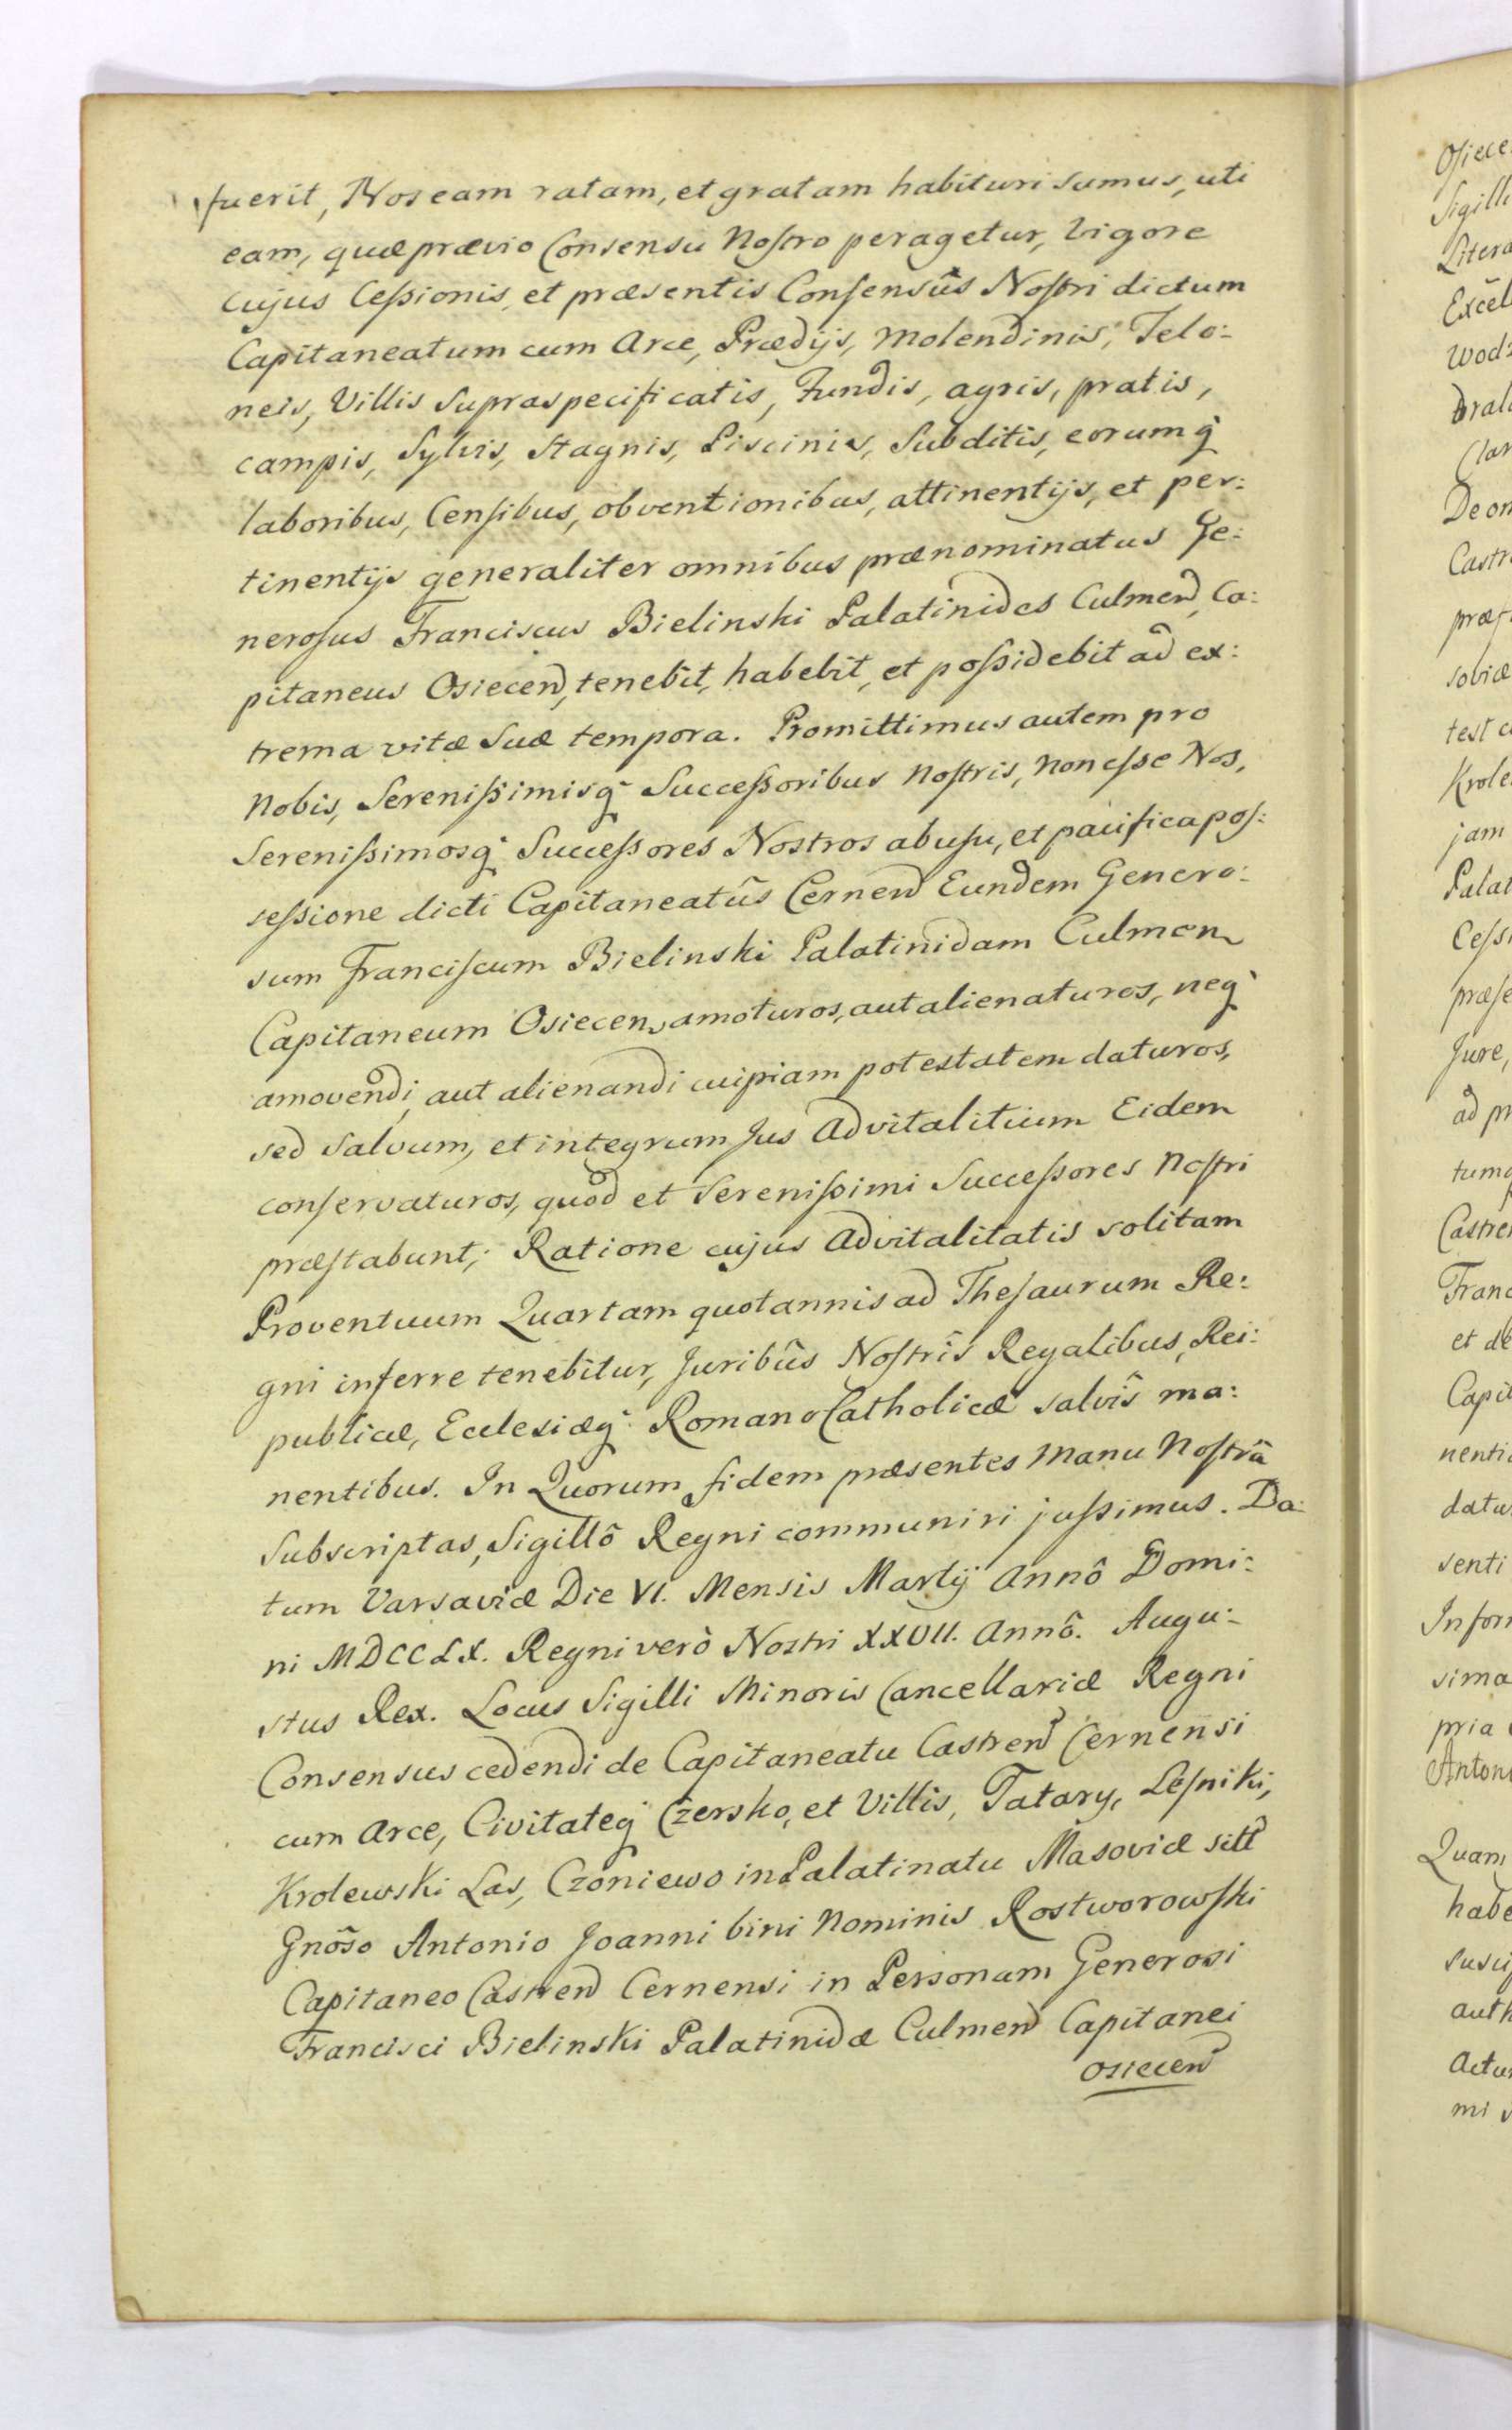 fuerit, Nos eam ratam, et gratam habituri sumus, uti
eam, quæ prævio Consensu Nostro peragetur, Vigore
cujus Cessionis, et præsentis Consensûs Nostri dictum
Capitaneatum cum Arce, Prædijs, Molendinis, Telo:
neis, Villis Supraspecificatis, Fundis, agris, pratis,
campis, Sylvis, Stagnis, Piscinis, Subditis, eorumq̃
laboribus, Censibus, obventionibus, attinentijs, et per:
tinentijs generaliter omnibus prænominatus Ge:
nerosus Franciscus Bielinski Palatinides Culmen̄, Ca:
pitaneus Osiecen̄, tenebit, habebit, et possidebit ad ex:
trema vitæ Suæ tempora. Promittimus autem pro
Nobis, Serenissimisq̃ Successoribus Nostris, non esse Nos,
Serenissimosq̃ Successores Nostros ab usu, et pacifica pos:
sessione dicti Capitaneatûs Cernen̄ Eundem Genero:
sum Franciscum Bielinski Palatinidam Culmen
Capitaneum Osiecen, amoturos, aut alienaturos, neq̃
amovendi, aut alienandi cuipiam potestatem daturos,
sed Salvum, et integrum Jus Advitalitium Eidem
conservaturos, quod et Serenissimi Successores Nostri
præstabunt; Ratione cujus Advitalitatis solitam
Proventuum Quartam quotannis ad Thesaurum Re:
gni inferre tenebitur, Juribûs Nostris Regalibus, Rei:
publicæ, Ecclesiæq̃ Romano Catholicæ salvis ma:
nentibus. In Quorum fidem præsentes Manu Nostrâ
Subscriptas, Sigillô Regni communiri jussimus. Da:
tum Varsaviæ Die VI. Mensis Martij Annô Domi:
ni MDCCLX. Regni verò Nostri XXVII. Annô. Augu:
stus Rex. Locus Sigilli Minoris Cancellariæ Regni
Consensus cedendi de Capitaneatu Castren̄ Cernensi
cum Arce, Civitateq̃ Czersko, et Villis, Tatary, Lesniki,
Krolewski Las, Czoniewo in Palatinatu Masoviæ sitt̄
Gnôso Antonio Joanni bini Nominis Rostworowski
Capitaneo Castren̄ Cernensi in Personam Generosi
Francisci Bielinski Palatinidæ Culmen̄ Capitanei
Osiecen̄